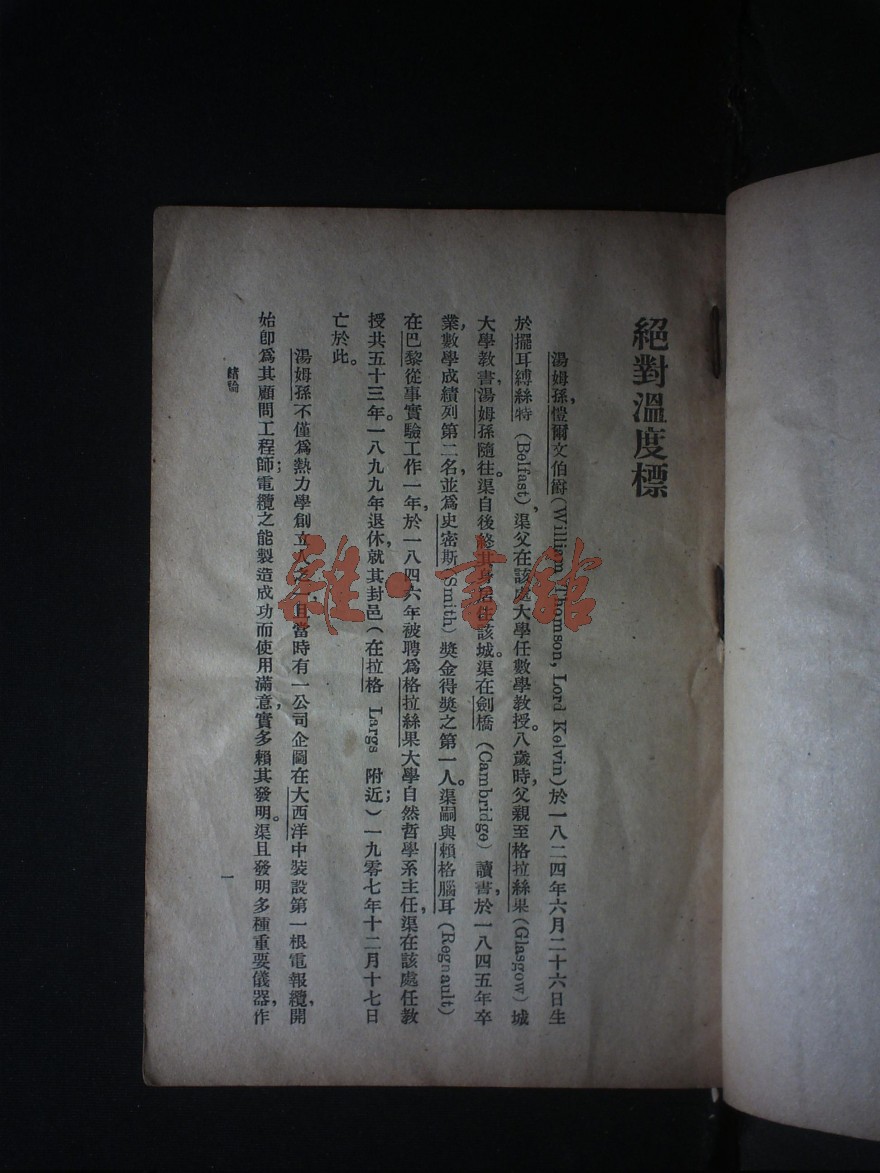 絕對溫度標
湯姆孫,愷爾文伯爵(William Thomson, Lord Kelvin)於一八二四年六月二十六日生
於擺耳縛絲特(Belfast),渠父在該處大學任數學教授。八歲時,父親至格拉絲果(Glasgow)城
大學教書,湯姆孫隨往。渠自後終其身居住該城。渠在劍橋(Cambridge)讀書,於一八四五年卒
業,數學成績列第二名,並爲史密斯(Smith)獎金得獎之第一人。渠嗣與賴格腦耳(Regnault)
在巴黎從事實驗工作一年,於一八四六年被聘爲格拉絲果大學自然哲學系主任,渠在該處任教
授共五十三年。一八九九年退休,就其封邑(在拉格 Largs 附近);一九零七年十二月十七日
亡於此。
湯姆孫不僅爲熱力學創立人之一,且當時有一公司企圖在大西洋中裝設第一根電報纜,開
始卽爲其顧問工程師;電纜之能製造成功而使用滿意,實多賴其發明。渠且發明多種重要儀器,作
緒論
一
雜·書館